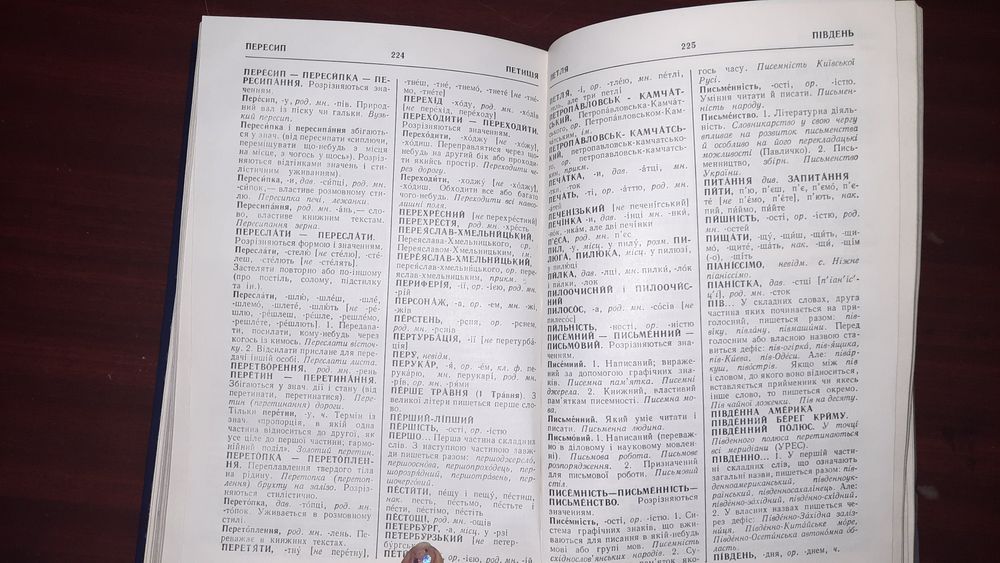 ПЕРЕСИП
224
ПЕТИЦІЯ
ПЕРЕСИП — ПЕРЕСИПКА — ПЕ-
РЕСИПАННЯ. Розрізняються зна-
ченням.
Пересип, -у, род. мн. -пів. Природ-
ний вал із піску чи гальки. Вузь-
кий пересип.
Пересипка і пересипання збігають-
ся у знач. (від пересипати сиплючи,
переміщувати що-небудь з місця
на місце, з чогось у щось»). Розріз-
няються відтінками значень і сти-
лістичним уживанням).
Пересипка, -и, дав. -сипці, род. мн.
-сипок,— властиве розмовному сти-
лю. Пересипка печі, лежанки.
Пересипання, род. мн. -ань,— сло-
во, властиве книжним текстам.
Пересипання зерна.
ПЕРЕСЛАТИ — ПЕРЕСЛАТИ.
Розрізняються формою і значенням.
Переслати, -стелю [не стелю́], -сте-
леш, -стелють [не -стелять].
Застеляти повторно або по-іншому
(про постіль, солому, підстилку
та ін.).
Переслати, -шлю, -шлеш, -шле,
-шлемо, -шлете, -шлють [не -ре-
шлю, -решлеш, -решле, -решлемо,
-решлете, -решлють]. 1. Передава-
ти, посилати, кому-небудь через
когось із кимось. Переслати вісточ-
ку. 2. Відсилати прислане для пере-
дачі іншій особі. Переслати листа.
ПЕРЕТВОРЕННЯ, род. мн. -рень
ПЕРЕТИН — ПЕРЕТИНАННЯ.
Збігаються у знач. дії і стану (від
перетинати, перетинатися). Пере-
тин (перетинання) дороги.
Тільки перетин, -у, ч. Термін із
знач. «пропорція, в якій одна
частина відноситься до другої, як
усе ціле до першої частини; гар-
монійний поділ». Золотий перетин.
ПЕРЕТОПКА — ПЕРЕТОПЛЕН-
НЯ. Переплавлення твердого тіла
на рідину. Перетопка (перетоп-
лення) брухту на залізо. Розрізня-
ються стилістично.
Перетопка, дав. -топці, род. мн.
-топок. Уживається в розмовному
стилі.
Перетоплення, род. мн. -лень. Пе-
реважає в книжних текстах.
ПЕРЕТЯТИ, -тну́ [не перетну],
-тнеш, -тне, -тнемо, -тнете [не -тне-
мо, -тнете]
ПЕРЕХІД -ходу, род. мн. -ходів
[не перехід, переходу]
ПЕРЕХОДИТИ — ПЕРЕХОДИТИ.
Розрізняються значенням.
Переходити, -ходжу [не -хожу],
-ходиш. Переправлятися через що-
небудь на другий бік або проходи-
ти якийсь простір. Переходити че-
рез дорогу.
Переходити, -ходжу [не -хожу],
-ходиш. Обходити все або багато
чого-небудь. Переходити всі навко-
лишні поля.
ПЕРЕХРЕСНИЙ [не перехрестний]
ПЕРЕХРЕСТЯ, род. мн. -хресть
ПЕРЕЯСЛАВ-ХМЕЛЬНИЦЬКИЙ,
Переяслава-Хмельницького, ор.
Переяславом-Хмельницьким, ім.
ПЕРЕЯСЛАВ-ХМЕЛЬНИЦЬКИЙ,
переяслав-хмельницького, ор. пере-
яслав-хмельницьким, прикм.
ПЕРИФЕРІЯ, -ії, ор. -ією, род. мн.
-рій
ПЕРСОНАЖ, -а, ор. -ем, мн. -жі,
-жів
ПЕРСТЕНЬ, -рсня, ор. -рснем,
род. мн. -рснів
ПЕРТУРБАЦІЯ, -ії [не перетурба-
ція]
ПЕРУ, невідм.
ПЕРУКАР, -я, ор. -ем, кл. ф. пе-
рукарю, мн. перукарі, род. мн.
-рів, ор. мн. -рями
ПЕРШЕ ТРАВНЯ (1 Травня). З
великої літери пишеться перше сло-
во.
ПЕРШИЙ-ЛІПШИЙ
ПЕРШІСТЬ, -ості, ор. -істю
ПЕРШО... Перша частина складних
слів. З наступною частиною завж-
ди пишеться разом: першоджерело,
першооснова, першопроходець, пер-
шорозрядний, першотравень, пер-
шочерговий.
ПЕСТИТИ, пещу і пещу, пестиш,
нак. песть, пестьмо, пестьте і
пести, пестімо, пестіть
ПЕСТОЩІ, род. мн. -ощів
ПЕТЕРБУРГ, -а, місц. у -рзі
ПЕТЕРБУРЗЬКИЙ [не петер-
бургський]
ПЕТЛЯ
225
ПІВДЕНЬ
ПЕТЛЯ, -і, ор. -тлею, мн. петлі,
-тель, але три петлі
ПЕТРОПАВЛОВСЬК - КАМЧАТ-
СЬКИЙ, Петропавловська-Камчат-
ського, ор. Петропавловськом-Кам-
чатським, ім.
ПЕТРОПАВЛОВСЬК- КАМЧАТСЬ-
КИЙ, петропавловськ-камчатсько-
го, ор. петропавловськ-камчатським
ПЕЧАТКА, -и, дав. -атці, мн.
-тки, -ток
ПЕЧАТЬ, -ті, ор. -аттю, род. мн.
-атей
ПЕЧЕНІЗЬКИЙ [не печенігський]
ПЕЧІНКА -и, дав. -інці мн. -вкй,
-нок, -нкам, але дві печінки
П'ЄСА, род. мн. п'єс
ПИЛ, -у, місц. у пилу́, розм. ПИ-
ЛЮГА, ПИЛЮКА, місц. у пилюзі,
у пилюці
ПИЛКА, дав. -лці, мн. пилки, -лок
і пилки, -лок
ПИЛООЧИСНИЙ і ПИЛООЧИС-
НИЙ
ПИЛОСОС, -а, род. мн. -сосів [не
пилесос]
ПИЛЬНІСТЬ, -ності, ор. -ністю
ПИСЕМНИЙ — ПИСЬМЕННИЙ —
ПИСЬМОВИЙ. Розрізняються зна-
ченням.
Писемний. 1. Написаний, вираже-
ний за допомогою графічних зна-
ків. Писемна пам'ятка. Писемні
джерела. 2. Книжний, властивий
пам'яткам писемності. Писемна мо-
ва.
Письменний. Який уміє читати і
писати. Письменна людина.
Письмовий. 1. Написаний (переваж-
но в діловому і науковому мовлен-
ні). Письмова робота. Письмове
розпорядження. 2. Призначений
для письмової роботи. Письмовий
стіл.
ПИСЕМНІСТЬ—ПИСЬМЕННІСТЬ—
ПИСЬМЕНСТВО. Розрізняються
значенням.
Писемність, -ості, ор. -істю. 1. Си-
стема графічних знаків, що вжи-
ваються для писання в якій-небудь
мові або групі мов. Писемність
східнослов'янських народів. 2. Су-
купність пам'яток яко-
гось часу. Писемність Київської
Русі.
Письменність, -ості, ор. -істю.
Уміння читати й писати. Письмен-
ність народу.
Письменство. 1. Літературна діяль-
ність. Словникарство у свою чергу
впливає на розвиток письменства
й особливо на його перекладацькі
можливості (Павличко). 2. Пись-
менництво, збірн. Письменство
України.
ПИТАННЯ див. ЗАПИТАННЯ
ПИТИ, п'ю, п'єш, п'є, п'ємо, п'є-
те [не п'ємо, п'єте], п'ють, нак.
пий, пиймо, пийте
ПИШНІСТЬ, -ості, ор. -істю, род.
мн. -остей
ПИЩАТИ, -щу, -щиш, -щить, -щи-
мо, -щите, -щать, нак. -щи, -щім
(-о), -щіть
ПІАНІССІМО, невідм. с. Ніжне
піаніссімо.
ПІАНІСТКА, дав. -стці [п'іан'іс'-
ц'і], род. мн. -сток
ПІВ... У складних словах, друга
частина яких починається на при-
голосний, пишеться разом: пів-
віку, півлану, півмашини. Перед
голосним або власною назвою ста-
виться дефіс: пів-огірка, пів-ящика,
пів-Києва, пів-Одеси. Але: півар-
куш, півострів. Якщо між пів
і словом, до якого воно відноситься,
вставляється прикменник чи якесь
інше слово, то пишеться окремо.
Пів чайної ложечки. Пів на десяту.
ПІВДЕННА АМЕРИКА
ПІВДЕННИЙ БЕРЕГ КРИМУ.
ПІВДЕННИЙ ПОЛЮС. У точці
Південного полюса перетинаються
всі меридіани (УРЕС).
ПІВДЕННО... 1. У першій части-
ні складних слів, що означають
загальні назви, пишеться разом: пів-
денноамериканський, південноук-
раїнський, південносахалінець. Але:
південно-західний, південно-східний.
2. У власних назвах пишеться че-
рез дефіс: Південно-Західна заліз-
ниця, Південно-Китайське море,
Південно-Осетинська автономна об-
ласть.
ПІВДЕНЬ, -дня, ор. -днем, ч.